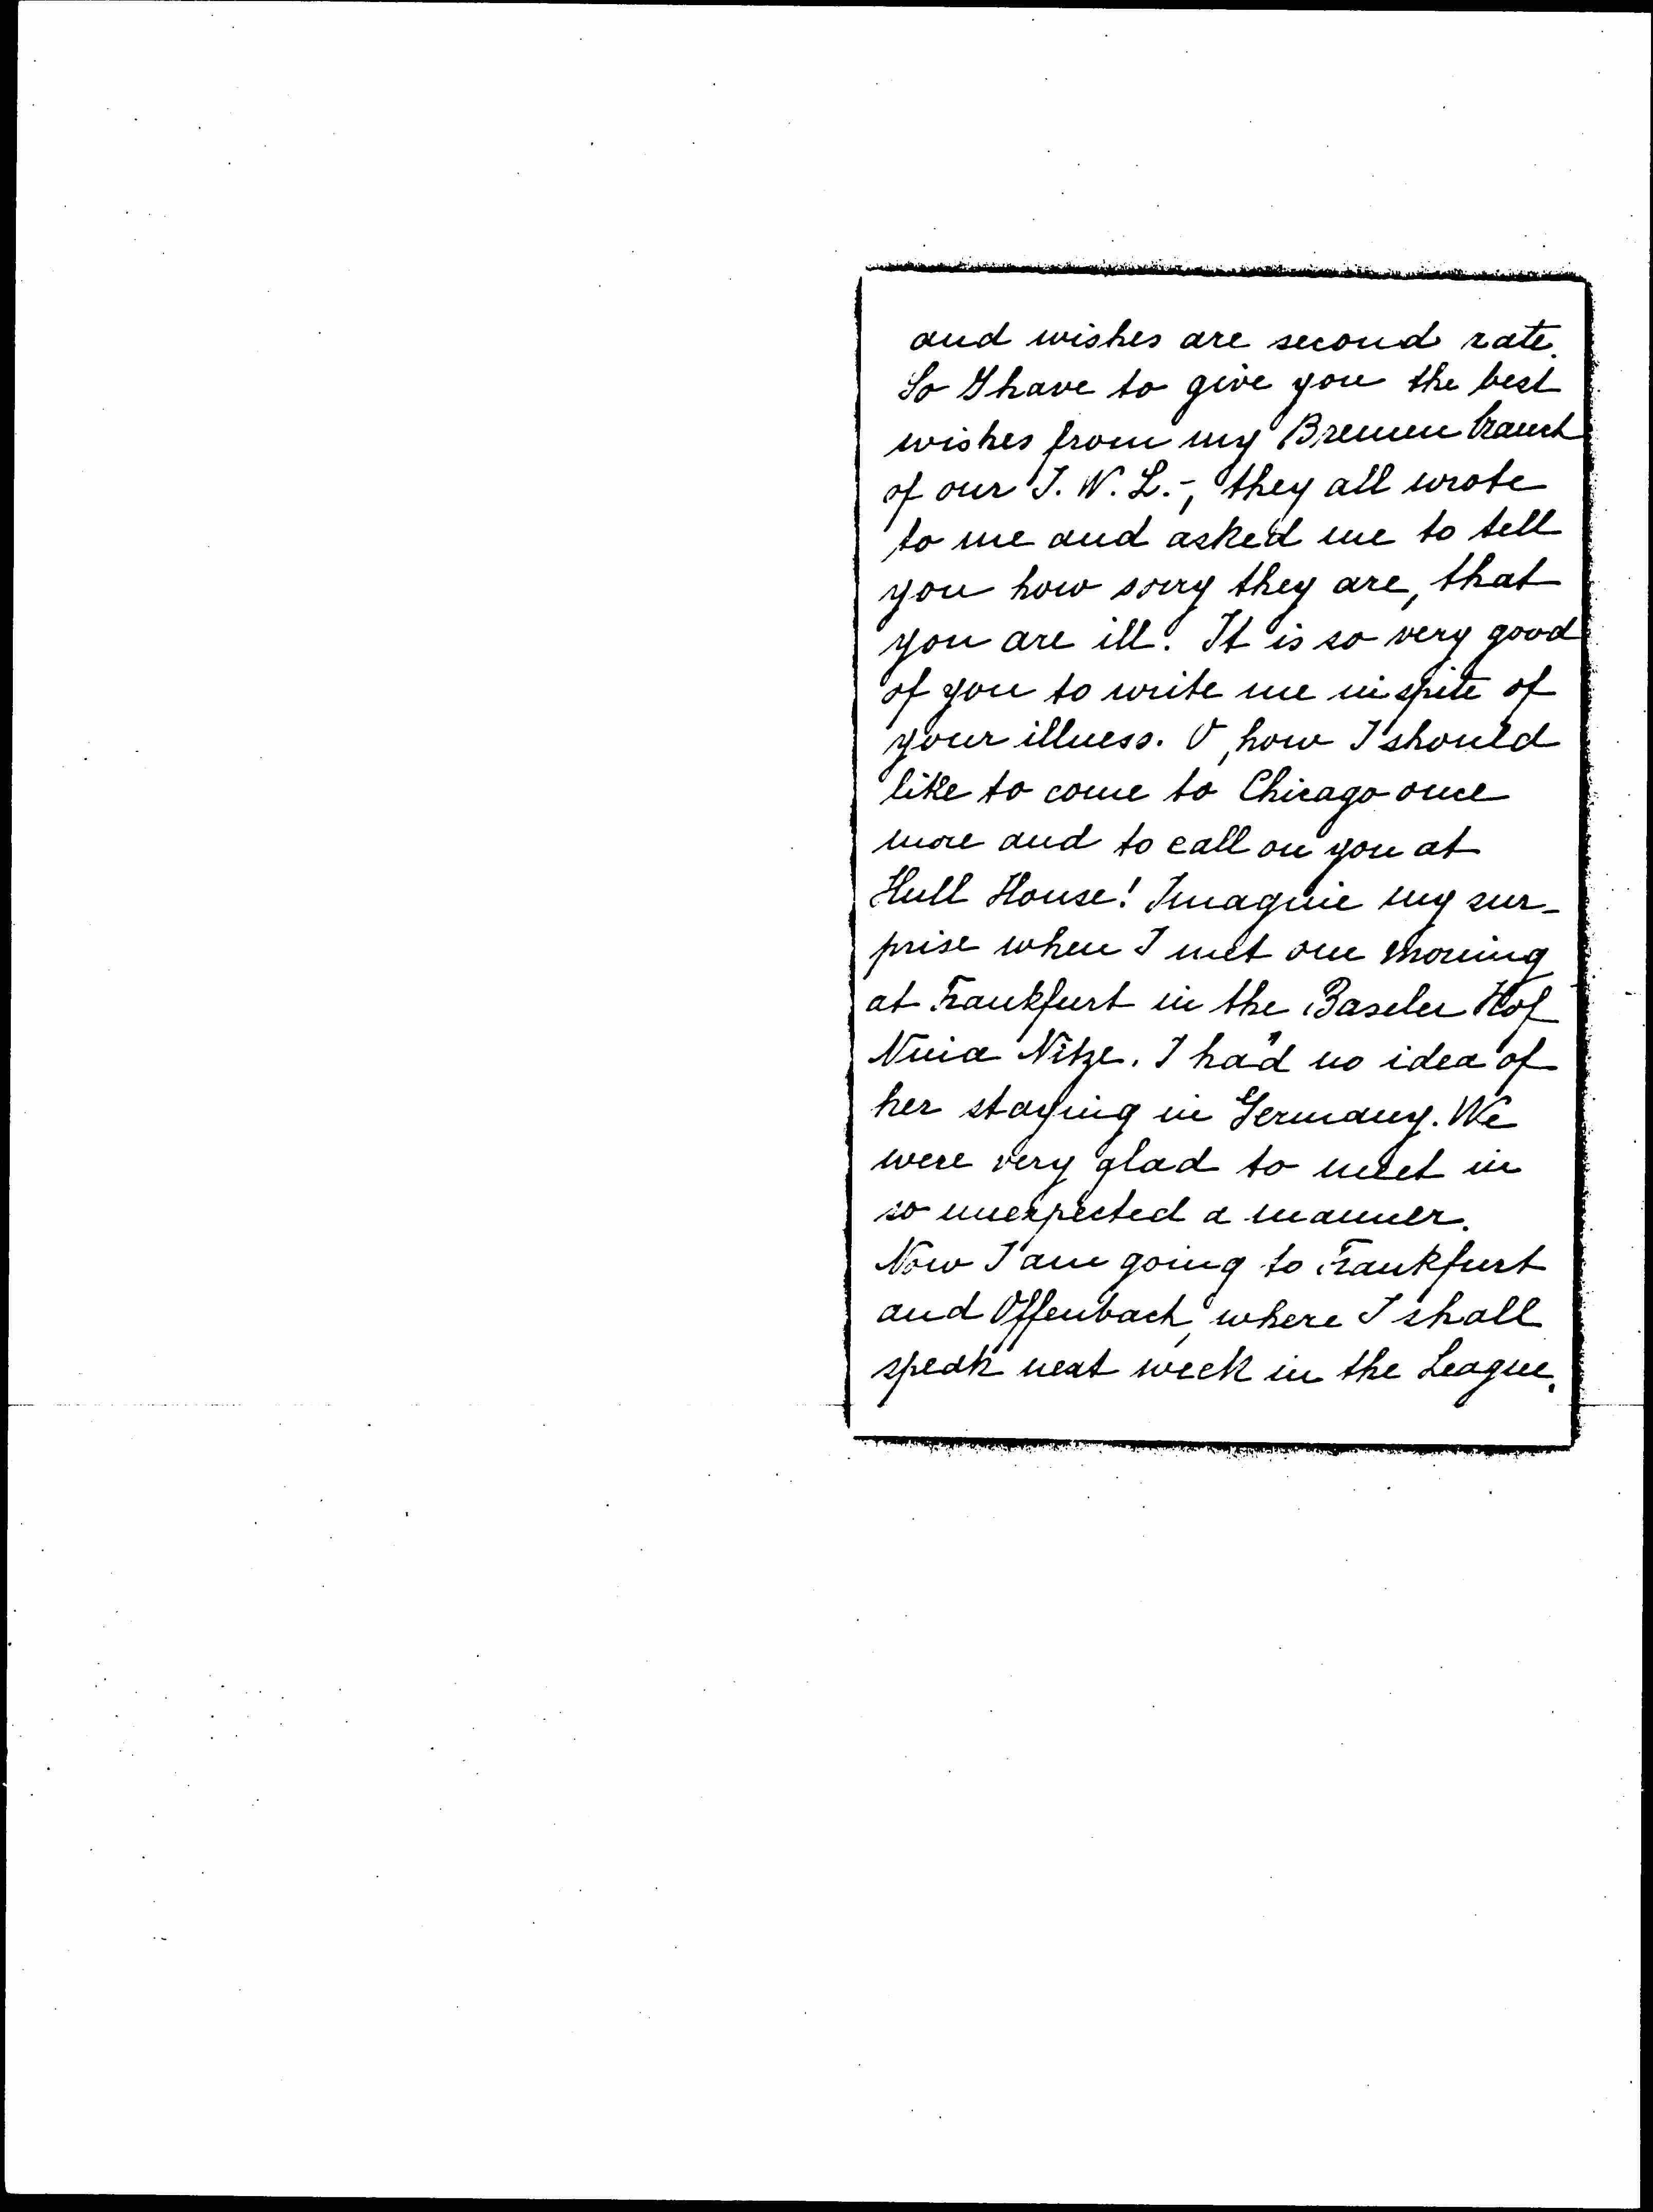 and wishes are second rate.
So I have to give you the best
wishes from my Bremen branch
of our I. W. L.-, they all wrote
to me and asked me to tell
you how sorry they are, that
you are ill. It is so very good
of you to write me in spite of
your illness. O, how I should
like to come to Chicago once
more and to call on you at
Hull House! Imagine my sur-
prise when I met one morning
at Frankfurt in the Baseler Hof
Nina Nitze. I had no idea of
her staying in Germany. We
were very glad to meet in
so unexpected a manner.
Now I am going to Frankfurt
and Offenbach, where I shall
speak next week in the League.